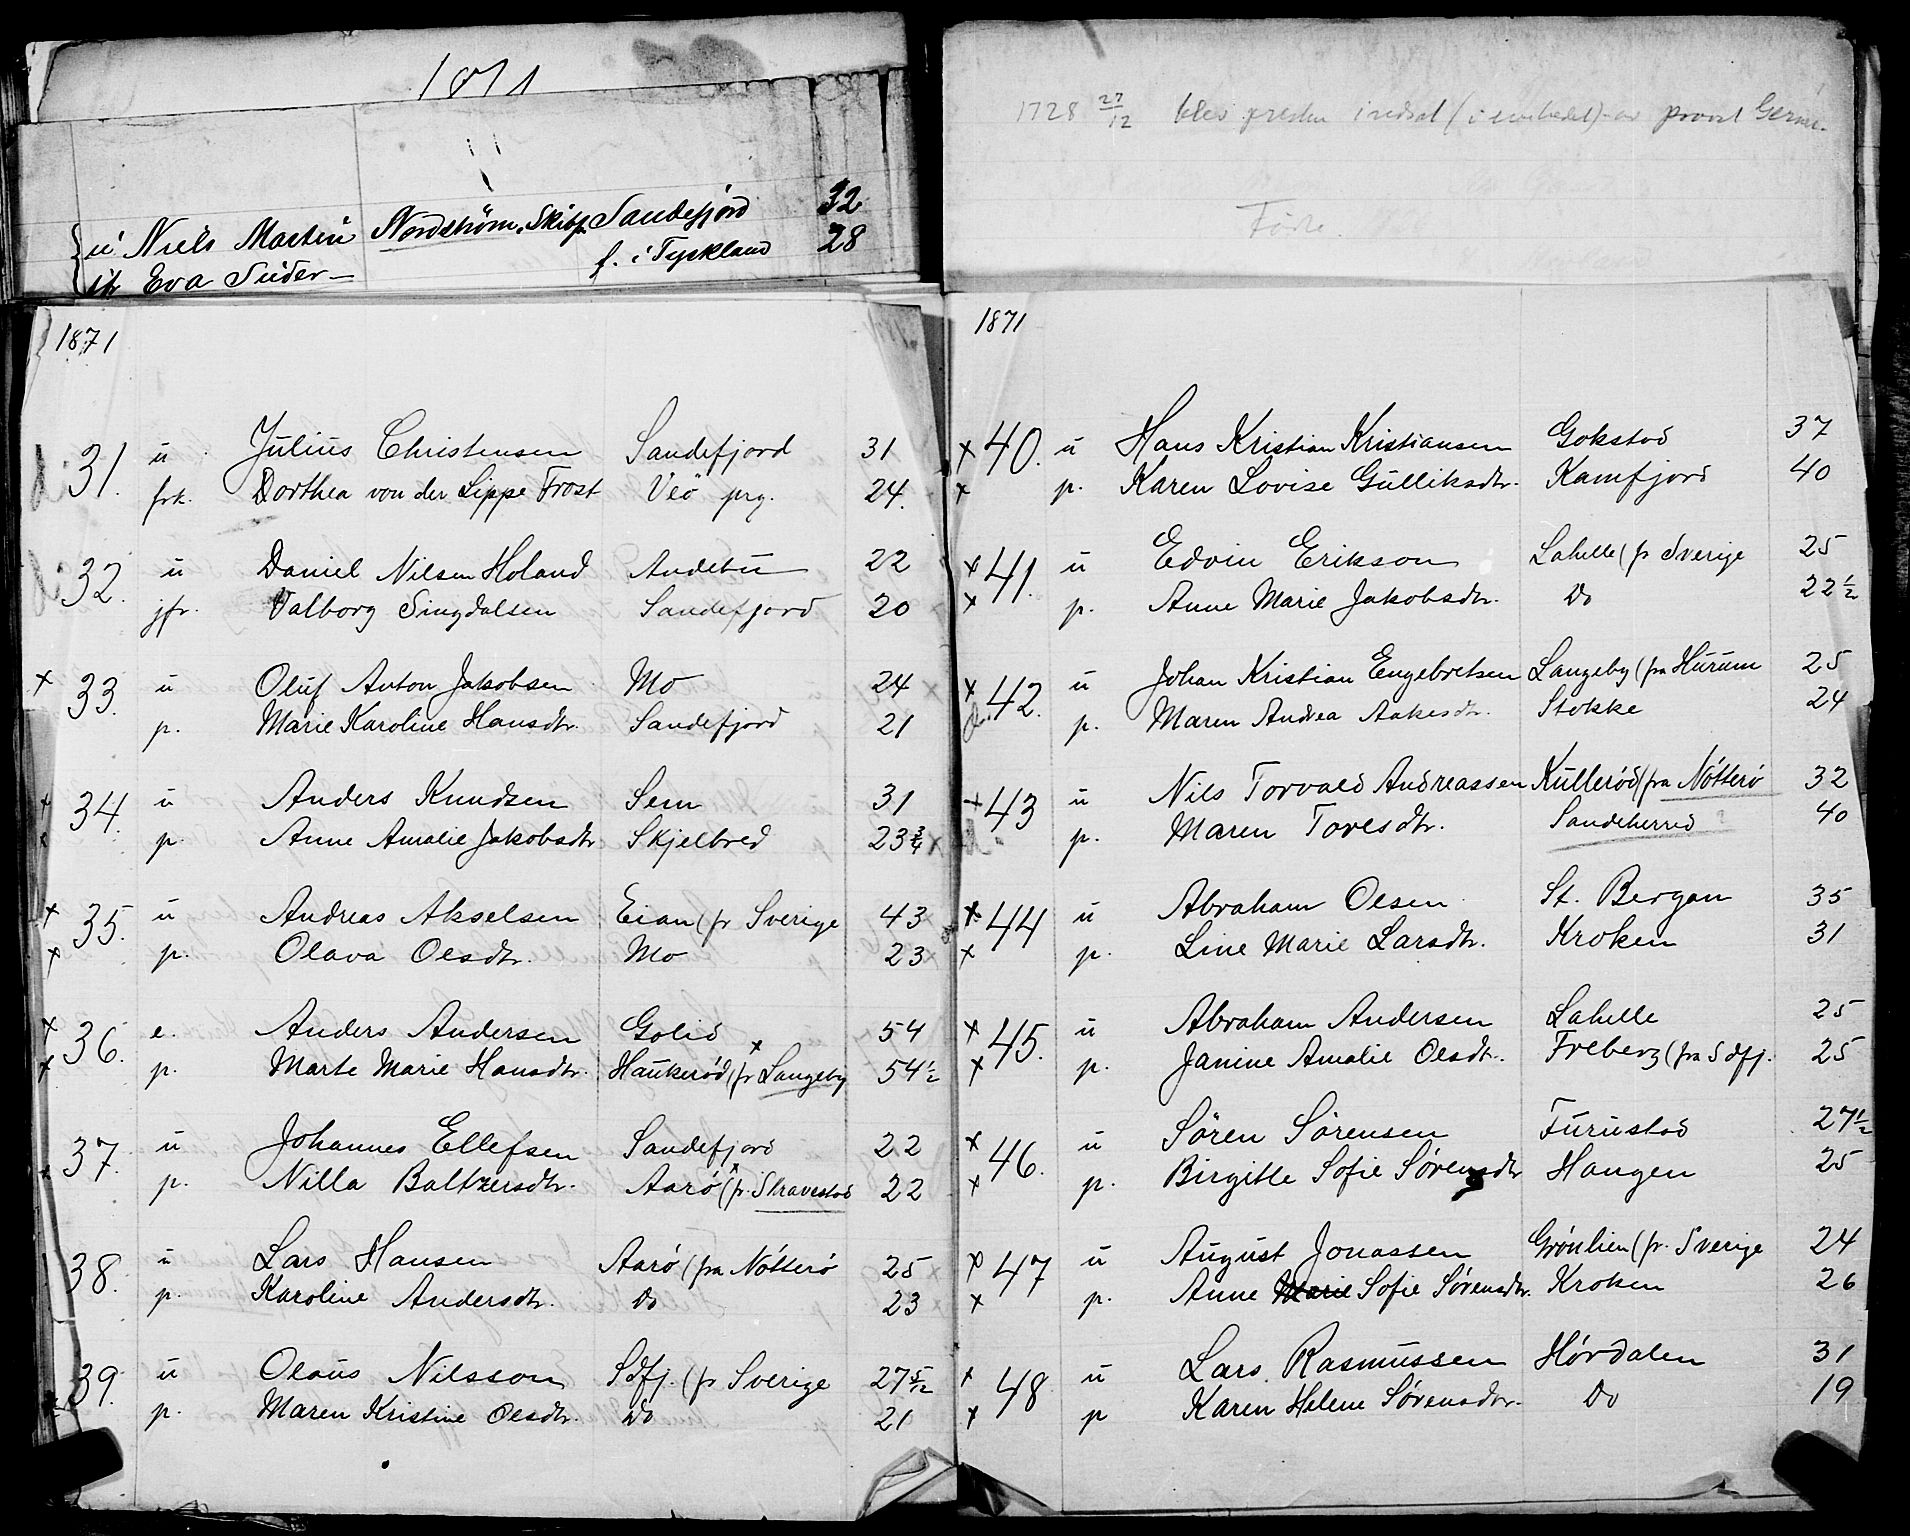 1871
u Niels Martin Nordström, Skibsf. Sandefjord 32
jfr Eva Suder— f. i Tyskland 28
1871
31. u Julius Christensen Sandefjord 31
frk. Dorthea von der Lippe Frost Veö prg. 24.
32. u Daniel Nilsen Holand Andebu 22
jfr. Valborg Singdalsen Sandefjord 20
x 33. u Oluf Anton Jakobsen Mo 24
p. Marie Karoline Hansdtr. Sandefjord 21
x 34. u Anders Knudsen Sem 31
x p. Anne Amalie Jakobsdtr Skjelbred 23 3/4
x 35. u Andreas Akselsen Eian (fr Sverige 43
x p. Olava Olsdtr. Mo 23
x 36. e. Anders Andersen Golid 54
x p. Marte Marie Hansdtr. Haukerød (fr x Langeby 54 1/2
37. u Johannes Ellefsen Sandefjord 22
x p. Nilla Baltzersdtr. Aarø (fr. x Skravestad 22
38. u Lars Hansen Aarø (fra Nötterö 25
p. Karoline Andersdtr. Do 23
39. u Olaus Nilsson Sdfj. (fr Sverige 27 5/12
p. Maren Kristine Olsdtr. Do 21
1728 27/12 blev presten indsat ( ) av provst
Födte.
1871
x 40. u Hans Kristian Kristiansen Gokstad 37
x p. Karen Lovise Gulliksdtr. Kamfjord 40
x 41. u Edvin Erikson Lahelle (fr Sverige 25
x p. Anne Marie Jakobsdtr. Do 22 1/2
x 42. u Johan Kristian Engebretsen Langeby (fra Hurum 25
p. Maren Andrea Aakesdtr. Stokke 24
x 43 u Nils Torvald Andreassen Kullerød (fra Nötterö 32
p. Maren Toresdtr. Sandeherred ? 40
x 44 u Abraham Olsen St. Bergan 35
x p. Line Marie Larsdtr. Kroken 31
x 45. u Abraham Andersen Lahelle 25
x p. Janine Amalie Olsdtr. Freberg (fra Sdfj. 25
x 46. u Sören Sörensen Furustad 27 1/2
x p. Birgitte Sofie Sörensdtr Haugen 25
x 47 u August Jonassen Grønlien (fr. Sverige 24
x p. Anne Marie Sofie Sörensdtr. Kroken 26
x 48 u Lars Rasmussen Hørdalen 31
x p Karen Helene Sörensdtr. Do 19